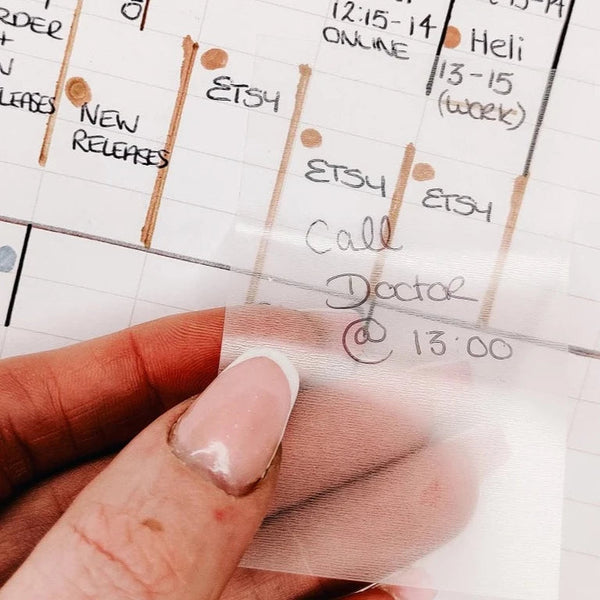 12:15-14
ONLINE
Heli
13-15
(WORK)
ETSY
NEW
RELEASES
ETSY
ETSY
Call
Doctor
@ 13:00